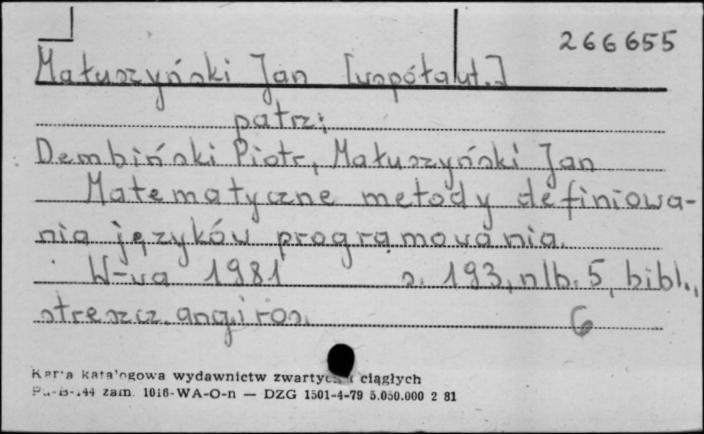 266655
Małuszyński Jan [współaut.]
patrz:
Dembiński Piotr, Małuszyński Jan
Matematyczne metody definiowa-
nia języków programowania.
W-wa 1981 s. 193, nlb. 5, bibl.,
streszcz. ang. i ros.
6
Karta katalogowa wydawnictw zwartych i ciągłych
Pu-B-144 zam. 1016-WA-O-n — DZG 1501-4-79 5.050.000 2 81